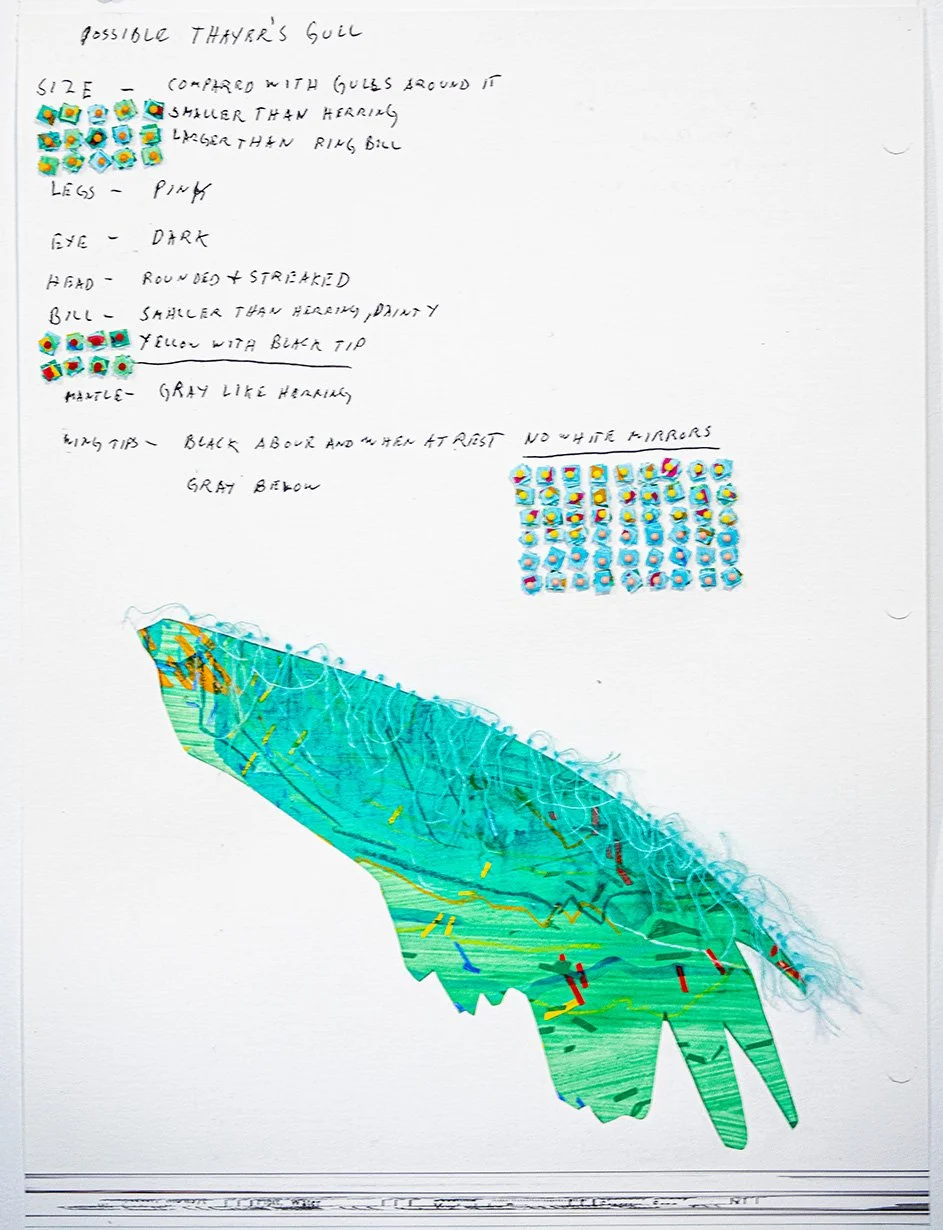 POSSIBLE THAYER'S GULL
SIZE — COMPARED WITH GULLS AROUND IT
SMALLER THAN HERRING
LARGER THAN RING BILL
LEGS — PINK
EYE — DARK
HEAD — ROUNDED + STREAKED
BILL — SMALLER THAN HERRING, DAINTY
YELLOW WITH BLACK TIP
MANTLE — GRAY LIKE HERRING
WING TIPS — BLACK ABOVE AND WHEN AT REST NO WHITE MIRRORS
GRAY BELOW